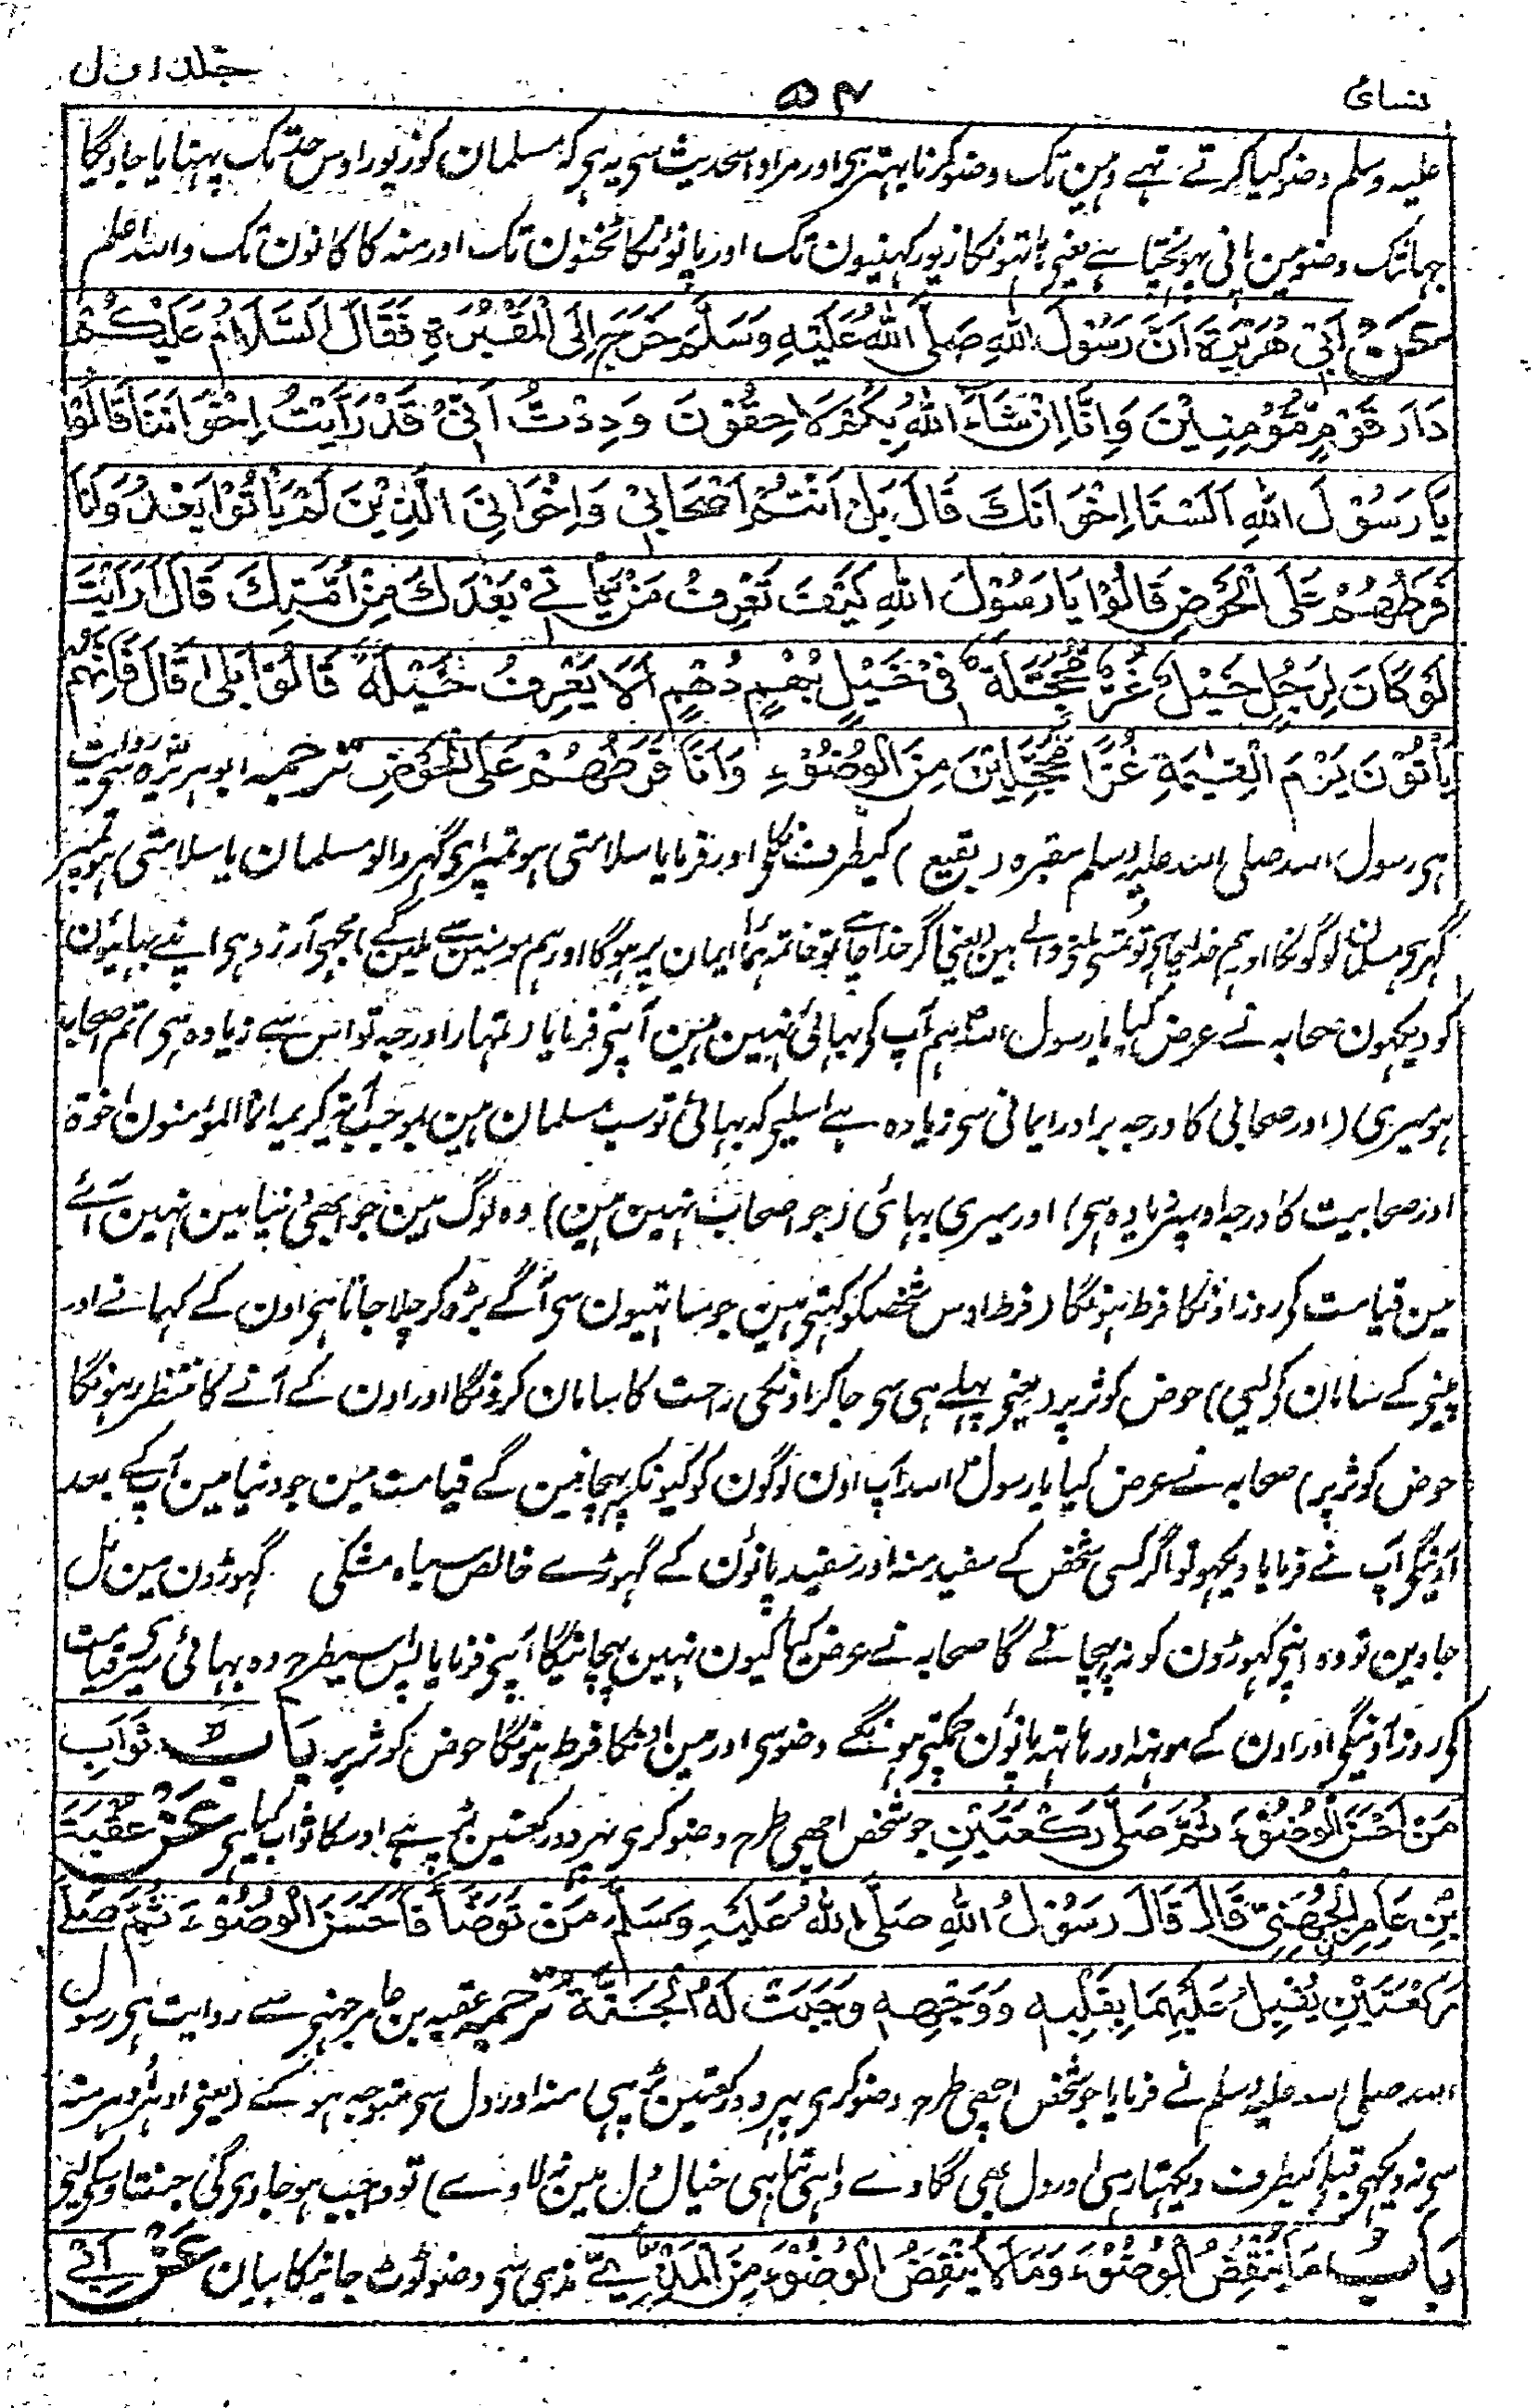 نسائی
۵۴
جلد اول
علیہ وسلم وضو کیا کرتے تہے وہین تک وضو کرنا بہتر ہی اور مراد اسحدیث سی یہ ہی کہ مسلمان کو زیور اوس حد تک پہنایا جاویگا
جہانتک وضو مین پانی پہونچتا ہے یعنی ہاتہونکا زیور کہنیون تک اور پانوُنکا ٹخنون تک اور منہ کا کانون تک واللہ اعلم
عَنْ اَبِیْ هُرَیْرَةَ اَنَّ رَسُوْلَ اللهِ صَلَّی اللهُ عَلَیْهِ وَسَلَّمَ خَرَجَ اِلَی الْمَقْبُرَةِ فَقَالَ اَلسَّلَامُ عَلَیْکُمْ
دَارَ قَوْمٍ مُّؤْمِنِیْنَ وَاِنَّا اِنْ شَاءَ اللهُ بِکُمْ لَاحِقُوْنَ وَدِدْتُّ اَنِّیْ قَدْ رَاَیْتُ اِخْوَانَنَا قَالُوْا
یَا رَسُوْلَ اللهِ اَلَسْنَا اِخْوَانَكَ قَالَ بَلْ اَنْتُمْ اَصْحَابِیْ وَاِخْوَانِیَ الَّذِیْنَ لَمْ یَاْتُوْا بَعْدُ وَاَنَا
فَرَطُهُمْ عَلَی الْحَوْضِ قَالُوْا یَا رَسُوْلَ اللهِ کَیْفَ تَعْرِفُ مَنْ یَّاْتِیْ بَعْدَكَ مِنْ اُمَّتِكَ قَالَ اَرَاَیْتَ
لَوْ کَانَ لِرَجُلٍ خَیْلٌ غُرٌّ مُّحَجَّلَةٌ فِیْ خَیْلٍ بُهْمٍ دُهْمٍ اَلَا یَعْرِفُ خَیْلَهٗ قَالُوْا بَلٰی قَالَ فَاِنَّهُمْ
یَاْتُوْنَ یَوْمَ الْقِیٰمَةِ غُرًّا مُّحَجَّلِیْنَ مِنَ الْوُضُوْءِ وَاَنَا فَرَطُهُمْ عَلَی الْحَوْضِ ترجمہ ابو ہریرہ سی روایت
ہی رسول اللہ صلی اللہ علیہ وسلم مقبرہ (بقیع) کیطرف نکلی اور فرمایا سلامتی ہو تمپر ای گہر والو مسلمان یا سلامتی ہو تمپر
گہر ہی مسلمان لوگونکا اور ہم خدا چاہی تو تمسی ملنی والے ہین (یعنی اگر خدا چاہے تو خاتمہ ہمارا ایمان پر ہوگا اور ہم مومنین سے ملینگے) مجہی آرزو ہی اپنے بہائیون
کو دیکہون صحابہ نے عرض کیا یا رسول اللہ ہم آپ کی بہائی نہین ہین آپنی فرمایا (تمہارا درجہ تو اس سے زیادہ ہی) تم اصحاب
ہو میری (اور صحابی کا درجہ برادر ایمانی سی زیادہ ہے اسلیی کہ بہائی تو سب مسلمان ہین بموجب آیۂ کریمہ انما المؤمنون اخوۃ
اور صحابیت کا درجہ اوسپر زیادہ ہی) اور میری بہائی (جو اصحاب نہین ہین) وہ لوگ ہین جو ابہی دنیا مین نہین آئے
مین قیامت کی روز اونکا فرط ہونگا (فرط اوس شخصکو کہتی ہین جو ساتہیون سی آگے بڑہ کر چلا جاتا ہی اون کے کہانے اور
پینی کے سامان کی لیی) حوض کوثر پر (یعنی پہلے ہی سی جا کر اونکی راحت کا سامان کرونگا اور اون کے آنے کا منتظر رہونگا
حوض کوثر پر) صحابہ نے عرض کیا یا رسول اللہ آپ اون لوگون کو کیونکر پہچانین گے قیامت مین جو دنیا مین آپکے بعد
آوینگی آپ نے فرمایا دیکہو تو اگر کسی شخص کے سفید منہ اور سفید پانوُن کے گہوڑے خالص سیاہ مشکی گہوڑون مین مل
جاوین تو وہ اپنی گہوڑون کو نہ پہچانے گا صحابہ نے عرض کیا کیون نہین پہچانیگا آپنی فرمایا پس اسیطرح وہ بہائی میری قیامت
کی روز آوینگی اور اون کے مونہہ اور ہاتہہ پانوُن چمکتی ہونگے وضو سی اور مین اونکا فرط ہونگا حوض کوثر پر بَابُ ثَوَابِ
مَنْ اَحْسَنَ الْوُضُوْءَ ثُمَّ صَلّٰی رَکْعَتَیْنِ جو شخص اچہی طرح وضو کری پہر دو رکعتین پڑہے اوسکا ثواب کیا ہی عَنْ عُقْبَةَ
بْنِ عَامِرٍ الْجُهَنِیِّ قَالَ قَالَ رَسُوْلُ اللهِ صَلَّی اللهُ عَلَیْهِ وَسَلَّمَ مَنْ تَوَضَّاَ فَاَحْسَنَ الْوُضُوْءَ ثُمَّ صَلّٰی
رَکْعَتَیْنِ یُقْبِلُ عَلَیْهِمَا بِقَلْبِهٖ وَوَجْهِهٖ وَجَبَتْ لَهُ الْجَنَّةُ ترجمہ عقبہ بن عامر جہنی سے روایت ہی رسول
اللہ صلی اللہ علیہ وسلم نے فرمایا جو شخص اچہی طرح وضو کری پہر دو رکعتین پڑہی منہ اور دل سی متوجہ ہو کے (یعنی ادہر اودہر منہ
سی نہ دیکہی قبلہ کیطرف دیکہتا رہی اور دل بہی لگاوے واہی تباہی خیال دل مین نہ لاوے) تو واجب ہو جاویگی جنت اوسکی لیی
بَابُ مَا یَنْقُضُ الْوُضُوْءَ وَمَا لَا یَنْقُضُ الْوُضُوْءَ مِنَ الْمَذْیِ مذی سی وضو ٹوٹ جانیکا بیان عَنْ اَبِیْ